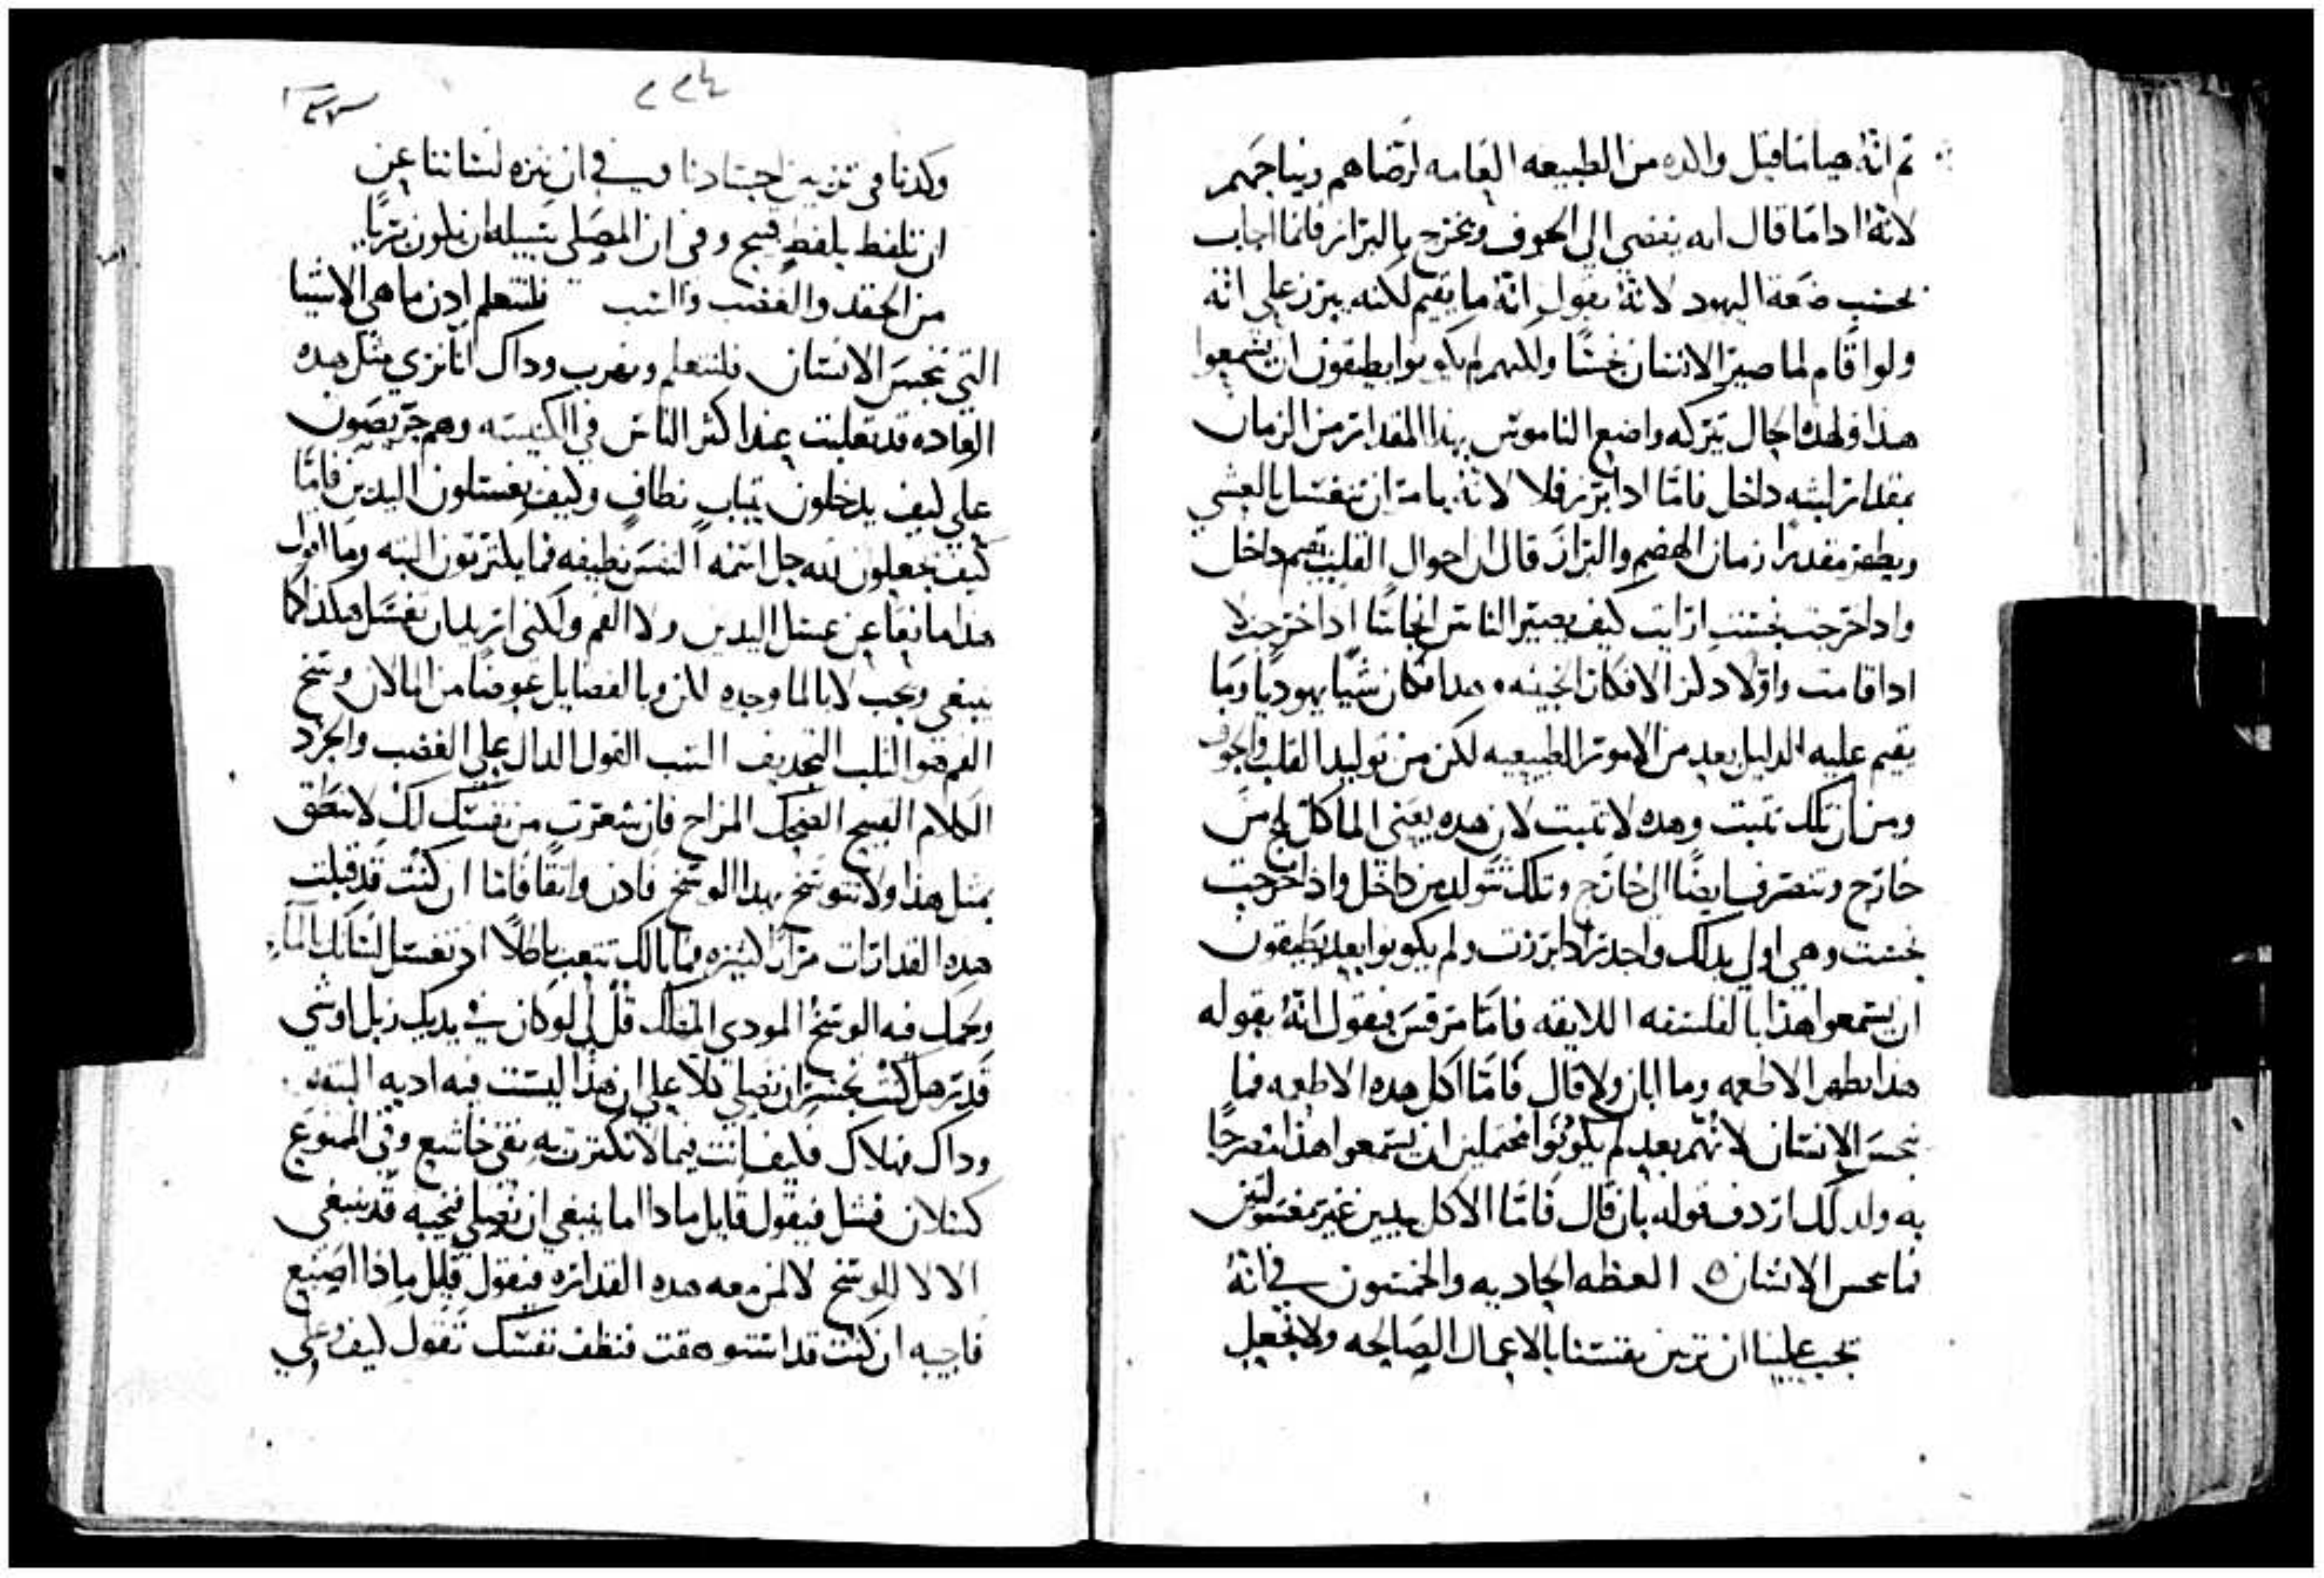 ثم انه هيا ما قبل والده من الطبيعه العامه لرضاهم ويناجهم
لانه ادا ما قال انه يفضي الي الجوف ويخرج بالبراز فانما اجاب
بحسب ضعة اليهود لانه يقول انه ما يقيم لكنه يبرز علي انه
ولوا قام لما صير الانسان نجسًا ولكنهم لم يكونوا يطيقون ان يسمعوا
هذا ولهذا الحال يتركه واضع الناموس بهذا المقدار من الزمان
بمقدار لبثه داخل فاما ادا برز فلا لانه يامر ان تغتسل بالعشي
ويطهر مقدرًا زمان الهضم والبراز قال ان احوال القلب تقيم داخل
وادا خرجت نجست ارايت كيف يصير الناس انجاسًا ادا خرجت لا
ادا قامت واولا دلن الافكار الخبيثه هدا فكان شيًا يهوديًا وما
يقيم عليه الدليل بعد من الامور الطبيعيه لكن من توليد القلب والجوف
ومن ان تلك تثبت وهده لا تثبت لان هده يعني الماكل تلج من
خارج وتنصرف ايضًا الي خارج وتلك تتولد من داخل واذا خرجت
نجست وهي اولي بدلك واجدر ادا برزت ولم يكونوا بعد يطيقون
ان يسمعوا هذا بالفلسفه اللايقه فاما مرقس فيقول انه بقوله
هذا يطهر الاطعمه وما ابان ولا قال فاما اكل هده الاطعمه فما
ينجس الانسان لانهم بعد لم يكونوا محتملين ان يسمعوا هذا مصرحًا
به ولدلك اردف قوله بان قال فاما الاكل بيدين غير مغسولتين
فما ينجس الانسان ٥ العظه الحاديه والخمسون في انه
يجب علينا ان نزين نفسنا بالاعمال الصالحه ولا نجعل
وكدنا في تزيين اجسادنا وفي ان ننزه لساننا عن
ان تلفط بلفط قبيح وفي ان المصلي سبيله ان يكون بريًا
من الحقد والغضب والسب فلنتعلم ادن ما هي الاشيا
التي تنجس الانسان فلنتعلم ونهرب وداك اننا نري مثل هده
العاده قد تغلبت عند اكثر الناس في الكنيسه وهم حريصون
علي كيف يدخلون بثياب نظاف وكيف يغسلون اليدين فاما
كيف يجعلون لله جل اسمه النفس نظيفه فما يكترثون البته وما اقول
هدا مانعًا عن غسل اليدين ولا الفم ولكني اريد ان نغسل هكدا كما
ينبغي ويجب لا بالما وحده لكن وبالفضايل عوضًا من الما لان وسخ
الفم هو الثلب التجديف السب القول الدال علي الغضب والحرد
الكلام القبيح الضحك المزاح فان شعرت من نفسك انك لا تنطق
بمثل هذا ولا تتوسخ بهدا الوسخ فادن واثقًا فاما ان كنت قد قبلت
هده القدارات مرارًا كثيره فما بالك تتعب باطلًا اذ تغسل لسانك بالماء
وتحمل فيه الوسخ المودي المهلك قل لي لو كان في يديك زبل او شي
قدر هل كنت تجسر ان تصلي كلا علي ان هذا ليست فيه اديه البته
وداك فهلاك فكيف انت فيما لا تكترث به تقي خاشع وفي الممنوع
كسلان فشل فيقول قايل مادا اما ينبغي ان نصلي فنجيبه قد ينبغي
الا لا للوسخ لا لمن معه هده القداره فيقول قايل ماذا اصنع
فاجيبه ان كنت قد اتسخت فنظف نفسك تقول كيف وعلي